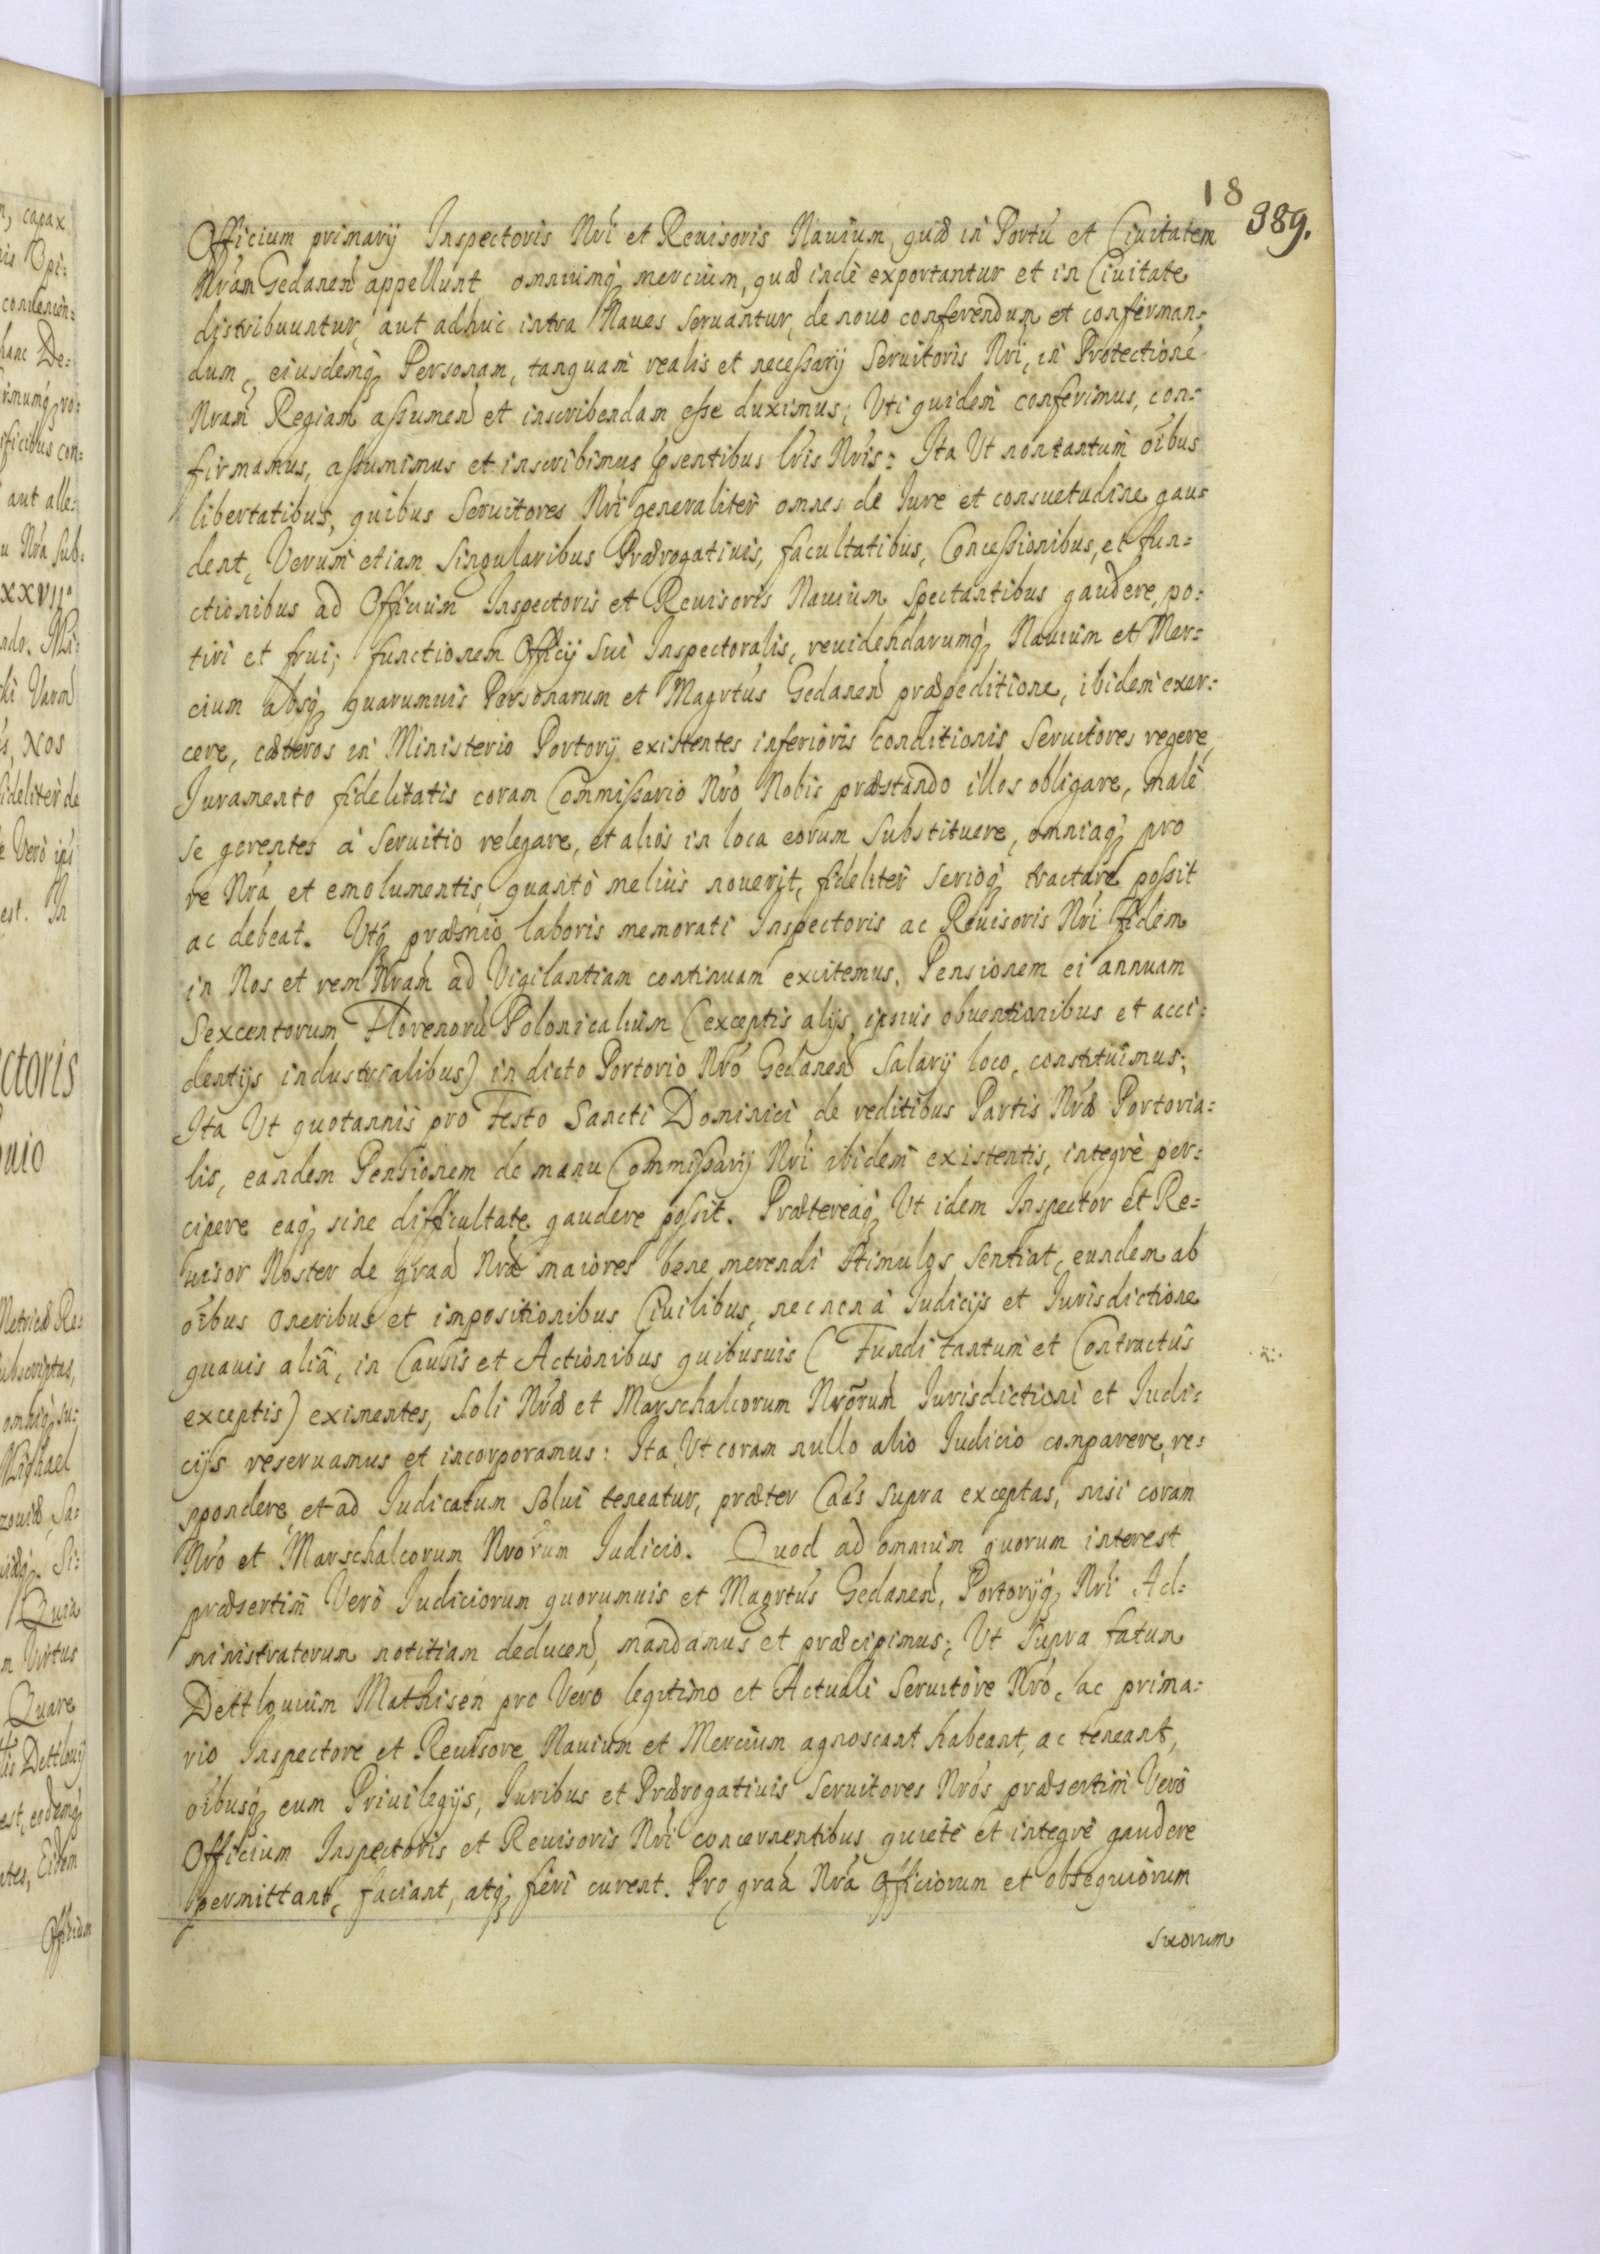 18
389.
Officium primarij Inspectoris Nri et Reuisoris Nauium, quæ in Portu et Ciuitatem
Nram Gedanen appellunt omniumq mercium, quæ inde exportantur et in Ciuitate
distribuuntur, aut adhuc intra Naues seruantur, de nouo conferendum et confirman:
dum, eiusdemq Personam, tanquam realis et necessarij Seruitoris Nri, in Protectione
Nram Regiam assumen et inscribendam esse duximus; Vti quidem conferimus, con:
firmamus, assumimus et inscribimus psentibus lris Nris: Ita Vt non tantum oibus
libertatibus, quibus Seruitores Nri generaliter omnes de Iure et consuetudine gau:
dent, Verum etiam singularibus Prærogatiuis, facultatibus, Concessionibus, et fun:
ctionibus ad Officium Inspectoris et Reuisoris Nauium spectantibus gaudere, po:
tiri et frui; functionem Officij sui Inspectoralis, reuidendarumq Nauium et Mer:
cium absq quarumuis Personarum et Magrtus Gedanen præpeditione, ibidem exer:
cere, cæteros in Ministerio Portorij existentes inferioris conditionis Seruitores regere,
Iuramento fidelitatis coram Commissario Nro Nobis præstando illos obligare, malè
se gerentes à Seruitio relegare, et alios in loca eorum substituere, omniaq pro
re Nra et emolumentis, quantò melius nouerit, fideliter serioq tractare possit
ac debeat. Vtq præmio laboris memorati Inspectoris ac Reuisoris Nri fidem
in Nos et rem Nram ad Vigilantiam continuam excitemus. Pensionem ei annuam
Sexcentorum Florenorũ Polonicalium (exceptis alijs ipsius obuentionibus et acci:
dentijs industrialibus) in dicto Portorio Nro Gedanen Salarij loco, constituimus;
Ita Vt quotannis pro Festo Sancti Dominici de reditibus Partis Nræ Portoria:
lis, eandem Pensionem de manu Commissarij Nri ibidem existentis, integrè per:
cipere eaq sine difficultate gaudere possit. Prætereaq Vt idem Inspector et Re:
uisor Noster de graa Nra maiores bene merendi stimulos sentiat, eundem ab
oibus oneribus et impositionibus Ciuilibus, necnon à Iudicijs et Iurisdictione
quauis aliâ, in Causis et Actionibus quibusuis (Fundi tantum et Contractus
exceptis) eximentes, soli Nræ et Marschalcorum Nrorum Iurisdictioni et Iudi:
cijs reseruamus et incorporamus: Ita Vt coram nullo alio Iudicio comparere, re:
spondere, et ad Iudicatum solui teneatur, præter Caas supra exceptas, nisi coram
Nro et Marschalcorum Nrorum Iudicio. Quod ad omnium quorum interest
præsertim Verò Iudiciorum quorumuis et Magrtus Gedanen, Portorijq Nri Ad:
ministratorum notitiam deducen, mandamus et præcipimus; Vt supra fatum
Dettlouium Mathisen pro Vero legitimo et Actuali Seruitore Nro, ac prima:
rio Inspectore et Reuisore Nauium et Mercium agnoscant habeant, ac teneant,
oibusq eum Priuilegijs, Iuribus et Prærogatiuis Seruitores Nros præsertim Verò
Officium Inspectoris et Reuisoris Nri concernentibus quietè et integrè gaudere
permittant, faciant, atq fieri curent. Pro graa Nra Officiorum et obsequiorum
suorum